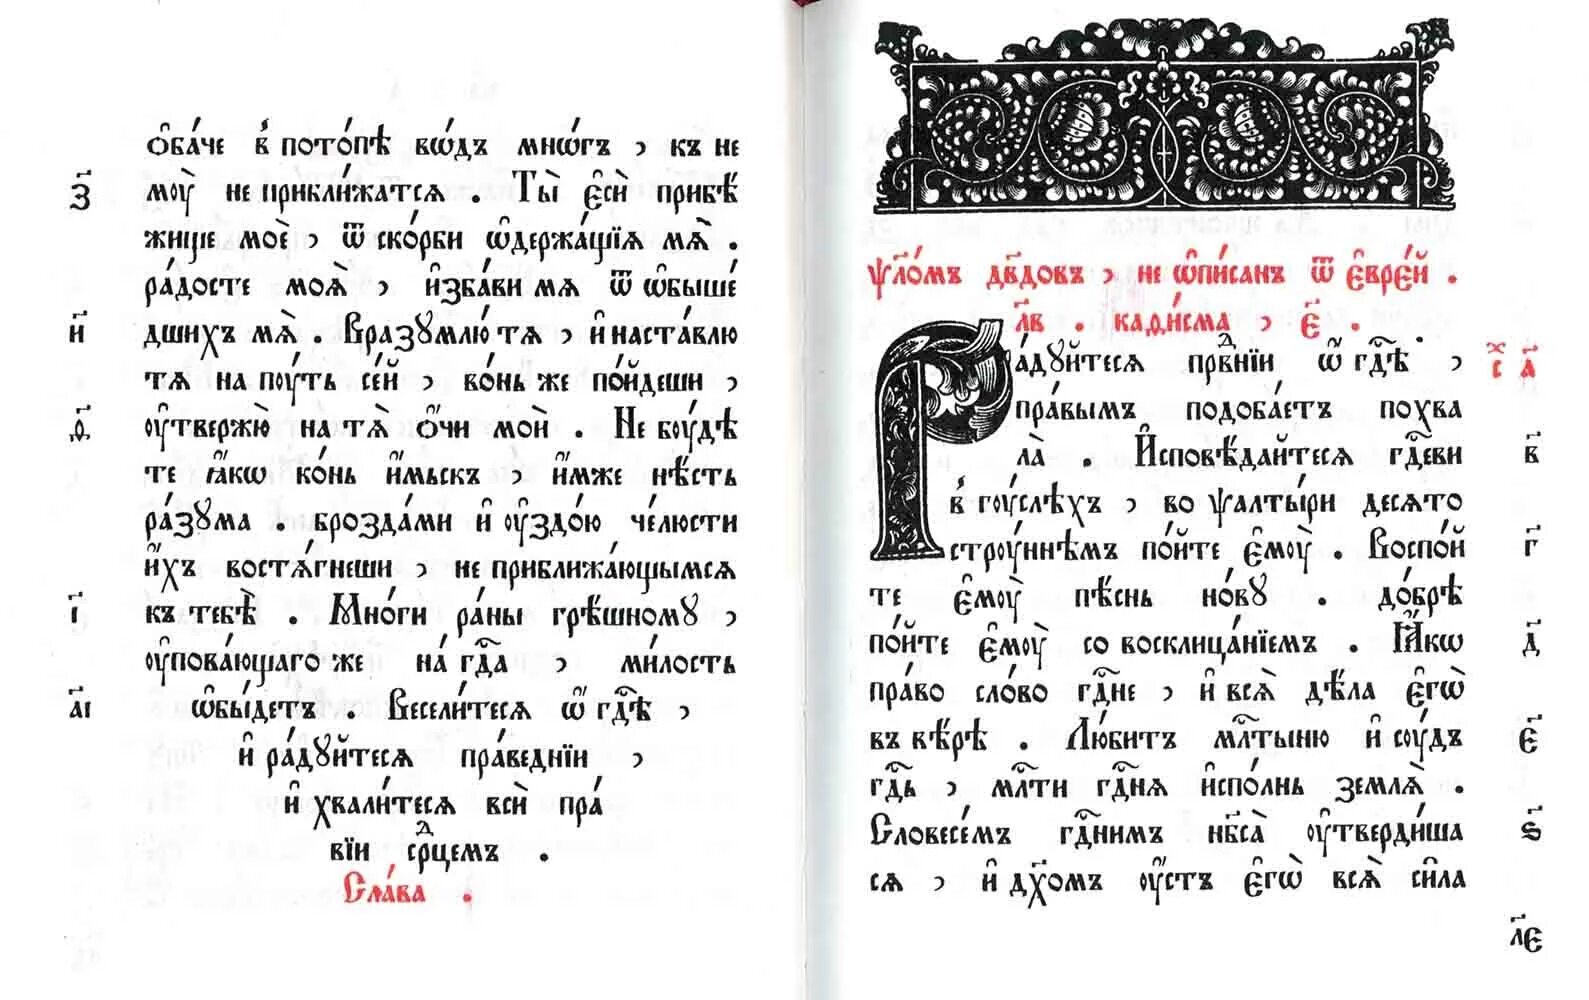 ѻ҆ба́че в҆ пото́пѣ во́дъ мно́гъ , къ не
з҃ моу̀ не прибли́жатсѧ . Ты̀ є҆сѝ прибѣ́
жище моѐ , ѿ ско́рби ѡ҆держа́щїѧ мѧ̀ .
ра́досте моѧ̀ , и҆зба́ви мѧ ѿ ѡ҆быше́
и҃ дшихъ мѧ̀ . Вразꙋмлю́ тѧ , и҆ наста́влю
тѧ на поу́ть се́й , во́нь же по́йдеши ,
ѳ҃ оу҆твержю̀ на тѧ̀ ѻ҆́чи моѝ . Не боу́дѣ
те ꙗ҆́кѡ ко́нь и҆́мьскъ , и҆́мже нѣ́сть
ра́зꙋма . брозда́ми и҆ оу҆здо́ю че́люсти
и҆́хъ востѧ́гнеши , не приближа́ющымсѧ
і҃ къ тебѣ̀ . Мно́ги ра́ны грѣ́шномꙋ ,
оу҆пова́ющаго же на́ гдⷭ҇а , ми́лость
а҃і ѡ҆бы́детъ . Весели́тесѧ ѡ҆́ гдⷭ҇ѣ ,
и҆ ра́дꙋйтесѧ пра́веднїи ,
и҆ хвали́тесѧ всѝ пра́
вїи срⷣцемъ .
Сла́ва .
ѱл҃о́мъ дв҃довъ , не ѡ҆пи́санъ ѿ є҆вре́й .
л҃в . каѳи́сма , є҃ .
Ра́дꙋйтесѧ прⷣвнїи ѡ҆́ гдⷭ҇ѣ , с҃ а҃
пра́вымъ подоба́етъ похва
ла̀ . И҆сповѣ́дайтесѧ гдⷭ҇еви в҃
в҆ гоу́слѣхъ , во ѱалты́ри десѧто
строу́ннѣмъ по́йте є҆моу̀ . Воспо́й г҃
те є҆моу̀ пѣ́снь но́вꙋ . до́брѣ
по́йте є҆моу̀ со восклица́нїемъ . Ꙗ҆́кѡ д҃
пра́во сло́во гдⷭ҇не , и҆ всѧ̀ дѣ́ла є҆гѡ̀
въ вѣ́рѣ . Лю́битъ мл҃тыню и҆ соу́дъ є҃
гдⷭ҇ь , млⷭ҇ти гдⷭ҇нѧ и҆спо́лнь землѧ̀ .
Словесе́мъ гдⷭ҇нимъ нб҃са̀ оу҆тверди́ша ѕ҃
сѧ , и҆ дх҃омъ оу҆́стъ є҆гѡ̀ всѧ̀ си́ла
л҃є